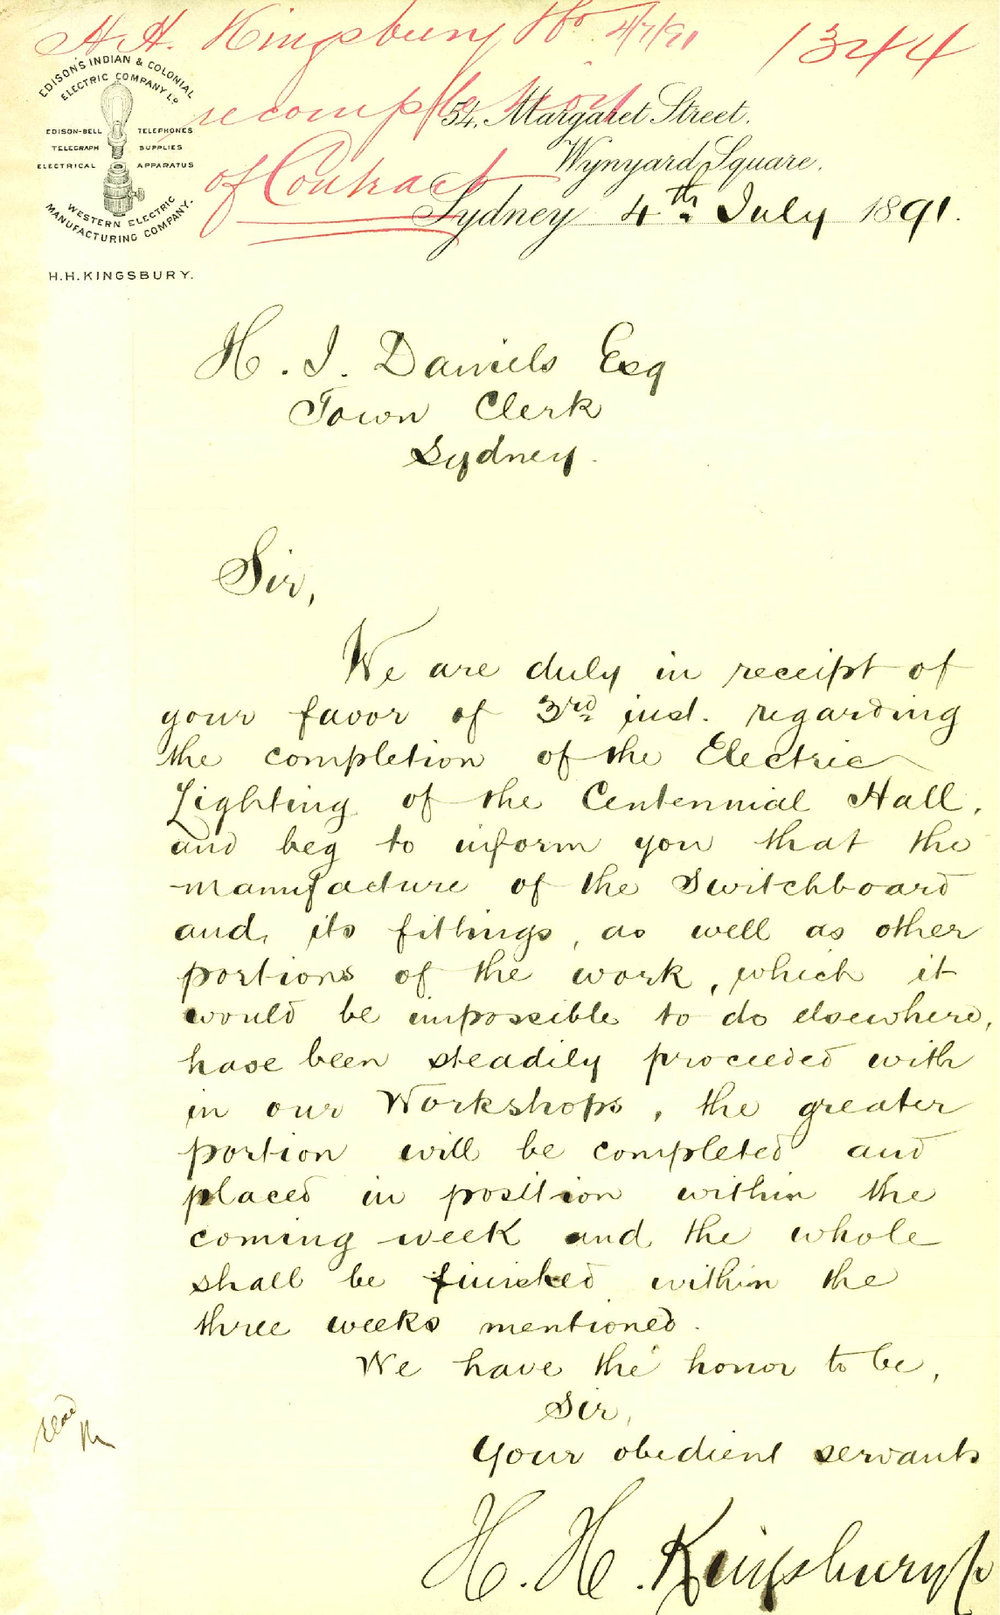 H. H. Kingsbury Ho 4/7/91
1344
re completion
of Contract
EDISON'S INDIAN & COLONIAL
ELECTRIC COMPANY Ld
EDISON-BELL TELEPHONES
TELEGRAPH SUPPLIES
ELECTRICAL APPARATUS
WESTERN ELECTRIC
MANUFACTURING COMPANY.
H.H.KINGSBURY.
54, Margaret Street.
Wynyard Square.
Sydney 4th July 1891.
H. J. Daniels Esq
Town Clerk
Sydney.
Sir,
We are duly in receipt of
your favor of 3rd inst. regarding
the completion of the Electric
Lighting of the Centennial Hall,
and beg to inform you that the
manufacture of the Switchboard
and, its fittings, as well as other
portions of the work, which it
would be impossible to do elsewhere,
have been steadily proceeded with
in our Workshops, the greater
portion will be completed and
placed in position within the
coming week and the whole
shall be finished within the
three weeks mentioned.
We have the honor to be,
Sir,
Your obedient servants
H. H. Kingsbury Co
read